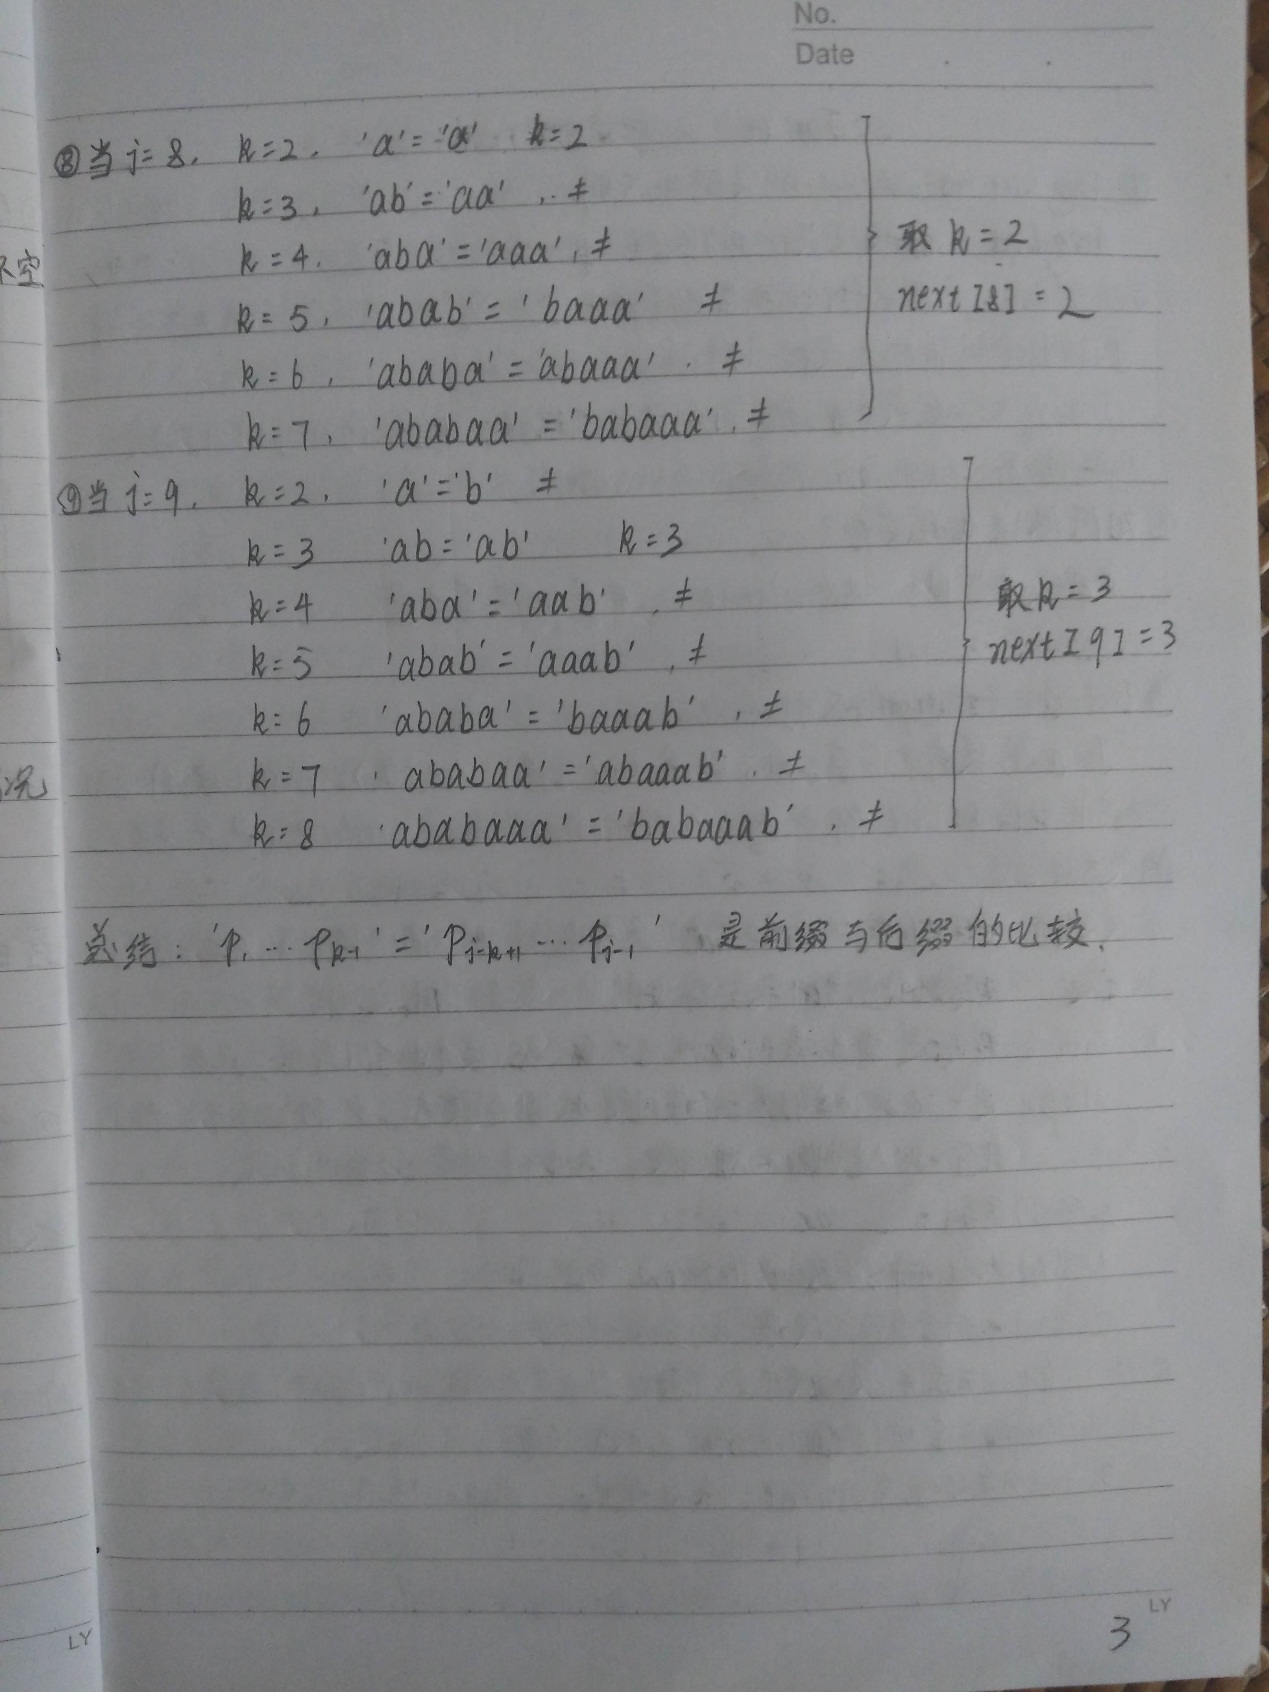 No.
Date
⑧当j=8. k=2. 'a'='a' k=2
k=3. 'ab'='aa' .. ≠
k=4. 'aba'='aaa'. ≠
k=5. 'abab'='baaa' ≠
k=6. 'ababa'='abaaa'. ≠
k=7. 'ababaa'='babaaa'. ≠
取k=2
next[8]=2
⑨当j=9. k=2. 'a'='b' ≠
k=3 'ab='ab' k=3
k=4 'aba'='aab'. ≠
k=5 'abab'='aaab'. ≠
k=6 'ababa'='baaab'. ≠
k=7 'ababaa'='abaaab'. ≠
k=8 'ababaaa'='babaaab'. ≠
取k=3
next[9]=3
总结: 'p₁…pk-1'='pj-k+1…pj-1' 是前缀与后缀的比较.
不空
况
LY
LY
3